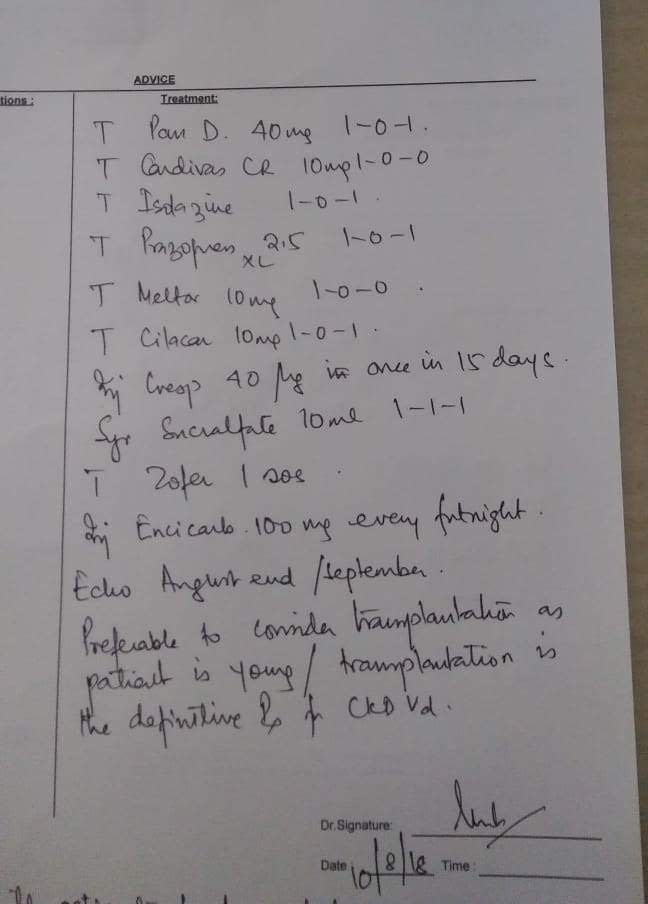 ADVICE
tions :
Treatment:
T Pan D. 40 mg 1-0-1.
T Cardivas CR 10mg 1-0-0
T Isolazine 1-0-1.
T Prazopress XL 2.5 1-0-1
T Meltor 10mg 1-0-0.
T Cilacar 10mg 1-0-1.
Inj Cresp 40 µg once in 15 days.
Syr Sucralfate 10ml 1-1-1
T Zofer 1 sos.
Inj Encicarb 100 mg every fortnight.
Echo August end / September.
Preferable to consider transplantation as
patient is young / transplantation is
the definitive Rx for CKD Vd.
Dr.Signature:
Date 10/8/18 Time :